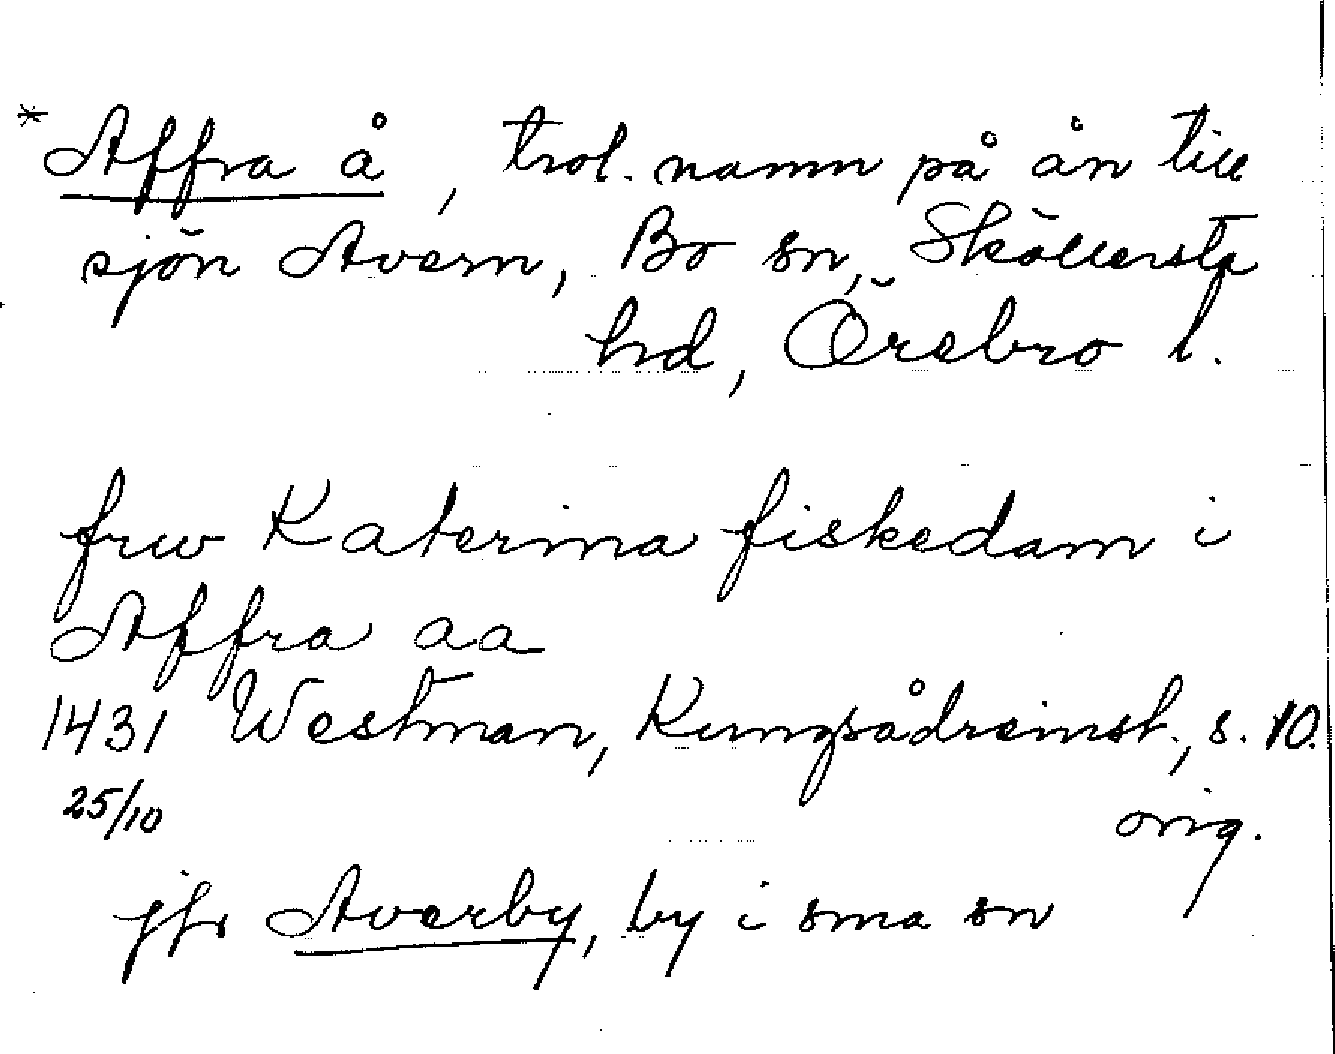 * Affra å, trol. namn på ån till
sjön Avern, Bo sn, Sköllersta
hd, Örebro l.
frw Katerina fiskedam i
Affra aa
1431 Westman, Kungsådreinst., s. 10.
25/10 orig.
jfr Averby, by i sma sn